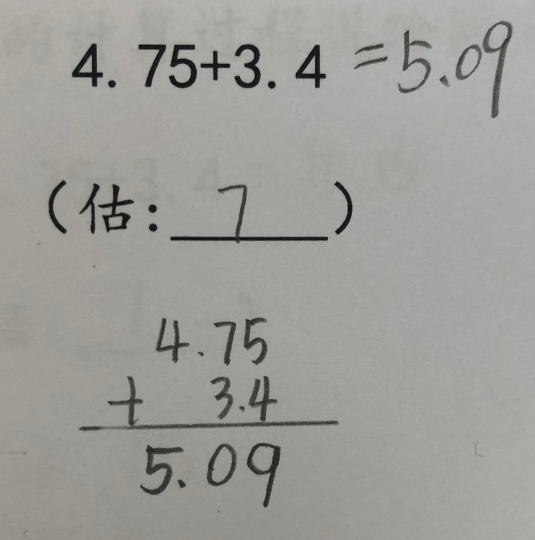 4.75+3.4 =5.09
(估: 7 )
4.75
+ 3.4
5.09